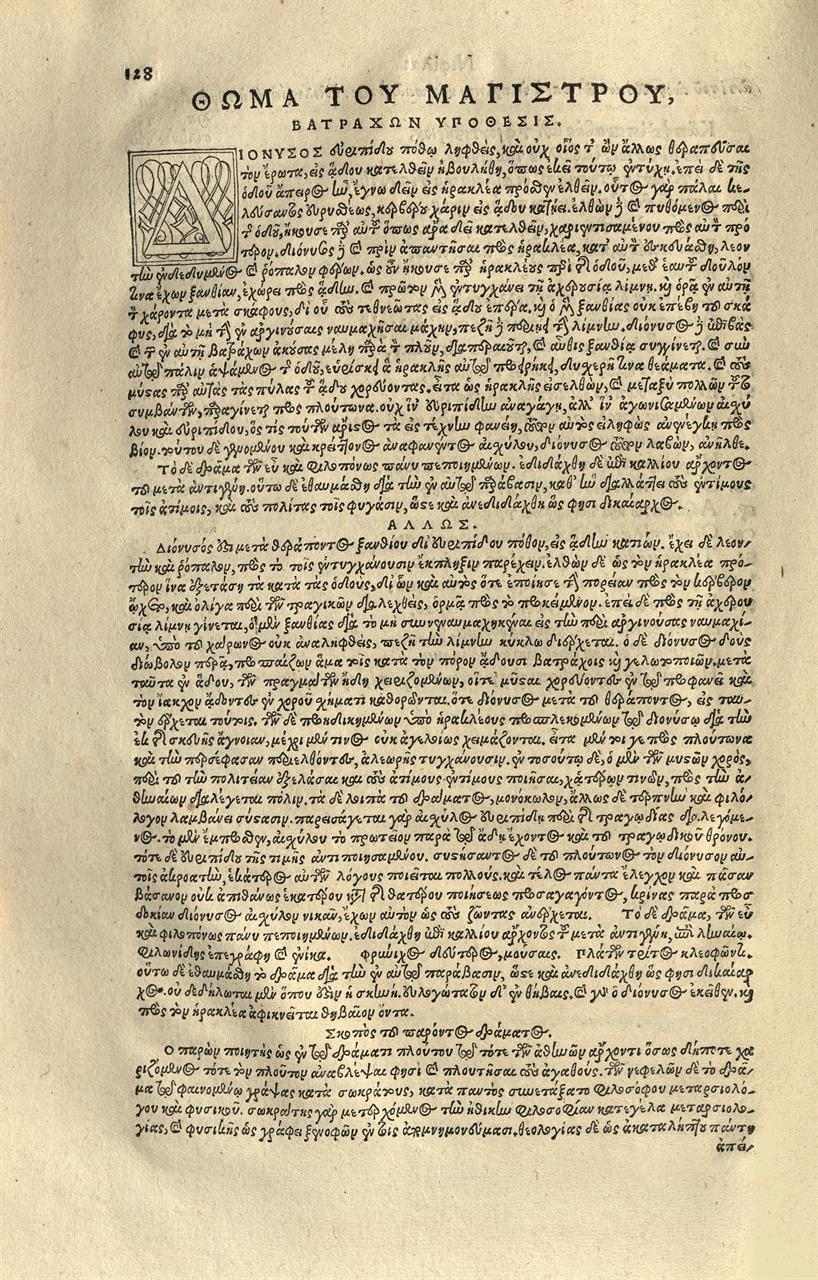 128
ΘΩΜΑ ΤΟΥ ΜΑΓΙΣΤΡΟΥ,
ΒΑΤΡΑΧΩΝ ΥΠΟΘΕΣΙΣ.
ΔΙΟΝΥΣΟΣ εὐριπίδου πόθῳ ληφθεὶς, καὶ οὐχ οἷός τ' ὢν ἄλλως θεραπεῦσαι
τὸν ἔρωτα, εἰς ᾅδου κατελθεῖν ἠβουλήθη, ὅπως ἐκεῖ τούτῳ ἐντύχῃ. ἐπεὶ δὲ τῆς
ὁδοῦ ἄπειρος ἦν, ἔγνω δεῖν εἰς ἡρακλέα πρόσθεν ἐλθεῖν. οὗτος γὰρ πάλαι κε-
λεύσαντος εὐρυσθέως, κερβέρου χάριν εἰς ᾅδου κατῄει. ἐλθὼν δὲ καὶ πυθόμενος περὶ
τ̄ ὁδοῦ, ἤκουσε παρ' αὐτοῦ ὅπως ἄρα δεῖ κατελθεῖν, χαριεντισαμένου πρὸς αὐτὸν πρό-
τερον. διόνυσος δὲ καὶ πρὶν ἀπαντῆσαι πρὸς ἡρακλέα, κατ' αὐτὸν ἐσκευάσθη, λεον-
τῆν ἐνδεδυμένος καὶ ῥόπαλον φέρων. ὡς οὖν ἤκουσε παρ' ἡρακλέους περὶ τῆς ὁδοῦ, μεθ' ἑαυτοῦ δοῦλόν
τινα ἔχων ξανθίαν, ἐχώρει πρὸς ᾅδην. καὶ πρῶτον μὲν ἐντυγχάνει τῇ ἀχερουσίᾳ λίμνῃ. καὶ ὁρᾷ ἐν αὐτῇ
τ̄ χάροντα μετὰ σκάφους, δι' οὗ τοὺς τεθνεῶτας εἰς ᾅδου ἐπέρα. καὶ ὁ μὲν ξανθίας οὐκ ἐπέβη τοῦ σκά-
φους, διὰ τὸ μὴ τὴν ἐν ἀργινούσαις ναυμαχῆσαι μάχην, πεζῇ δὲ περιῄει τὴν λίμνην. διόνυσος δὲ ἐπιβὰς
καὶ τῶν ἐν αὐτῇ βατράχων ἀκούσας μέλη παρὰ τὸν πλοῦν, διαπεραιοῦται, καὶ αὖθις ξανθίᾳ συγγίνεται. καὶ σὺν
αὐτῷ πάλιν ἁψάμενος τ̄ ὁδοῦ, εὑρίσκει ἃ ἡρακλῆς αὐτῷ προείρηκε, δυσχερῆ τινα θεάματα. καὶ τοὺς
μύστας παρ' αὐτὰς τὰς πύλας τοῦ ᾅδου χορεύοντας. εἶτα ὡς ἡρακλῆς εἰσελθὼν, καὶ μεταξὺ πολλῶν
συμβάντων, παραγίνεται πρὸς πλούτωνα. οὐχ ἵν' εὐριπίδην ἀναγάγῃ, ἀλλ' ἵν' ἀγωνιζομένων αἰσχύ-
λου καὶ εὐριπίδου, ὅστις τούτων ἄριστος τὰ εἰς τέχνην φανείη, τοῦτον αὐτὸς εἰληφὼς ἀνενέγκῃ πρὸς
βίον. τούτου δὲ γενομένου καὶ κρείττονος ἀναφανέντος αἰσχύλου, διόνυσος τοῦτον λαβὼν, ἀνῆλθε.
Τὸ δὲ δρᾶμα τῶν εὖ καὶ φιλοπόνως πάνυ πεποιημένων. ἐδιδάχθη δὲ ἐπὶ καλλίου ἄρχοντος
τοῦ μετὰ ἀντιγένη. οὕτω δὲ ἐθαυμάσθη διὰ τὴν ἐν αὐτῷ παράβασιν, καθ' ἣν διαλλάττει τοὺς ἐντίμους
τοῖς ἀτίμοις, καὶ τοὺς πολίτας τοῖς φυγάσιν, ὥστε καὶ ἀνεδιδάχθη ὥς φησι δικαίαρχος.
ΑΛΛΩΣ.
Διόνυσός ἐστι μετὰ θεράποντος ξανθίου δι' εὐριπίδου πόθον, εἰς ᾅδην κατιών. ἔχει δὲ λεον-
τῆν καὶ ῥόπαλον, πρὸς τὸ τοῖς ἐντυγχάνουσιν ἔκπληξιν παρέχειν. ἐλθὼν δὲ ὡς τὸν ἡρακλέα πρό-
τερον ἵνα ἐξετάσῃ τὰ κατὰ τὰς ὁδοὺς, δι' ὧν καὶ αὐτὸς ὅτε ἐποίησε τὴν πορείαν πρὸς τὸν κέρβερον
ᾤχετο, καὶ ὀλίγα περὶ τῶν τραγικῶν διαλεχθεὶς, ὁρμᾷ πρὸς τὸ προκείμενον. ἐπεὶ δὲ πρὸς τῇ ἀχερου-
σίᾳ λίμνῃ γίνεται, ὁ μὲν ξανθίας διὰ τὸ μὴ συνναυμαχηκέναι εἰς τὴν περὶ ἀργινούσας ναυμαχί-
αν, ὑπὸ τοῦ χάρωνος οὐκ ἀναληφθεὶς, πεζῇ τὴν λίμνην κύκλῳ διέρχεται. ὁ δὲ διόνυσος δοὺς
διώβολον περᾷ, προσπαίζων ἅμα τοῖς κατὰ τὸν πόρον ᾄδουσι βατράχοις καὶ γελωτοποιῶν. μετὰ
ταῦτα ἐν ᾅδου, τῶν πραγμάτων ἤδη χειριζομένων, οἵ τε μύσται χορεύοντες ἐν τῷ προφανεῖ καὶ
τὸν ἴακχον ᾄδοντες ἐν χοροῦ σχήματι καθορῶνται. ὅ τε διόνυσος μετὰ τοῦ θεράποντος, εἰς ταυ-
τὸν ἔρχεται τούτοις. τῶν δὲ προηδικημένων ὑπὸ ἡρακλέους προσπλεκομένων τῷ διονύσῳ διὰ τὴν
ἐκ τῆς σκευῆς ἄγνοιαν, μέχρι μέν τινος οὐκ ἀγελοίως χειμάζονται. εἶτα μέν τοι γε πρὸς πλούτωνα
καὶ τὴν περσέφασαν περιελθόντες, ἀλεωρῆς τυγχάνουσιν. ἐν τοσούτῳ δὲ, ὁ μὲν τῶν μυστῶν χορὸς,
περὶ τοῦ τὴν πολιτείαν ἐξελάσαι καὶ τοὺς ἀτίμους ἐντίμους ποιῆσαι, χἀτέρων τινῶν, πρὸς τὴν ἀ-
θηναίων διαλέγεται πόλιν. τὰ δὲ λοιπὰ τοῦ δράματος, μονόκωλον, ἄλλως δὲ τερπνὴν καὶ φιλό-
λογον λαμβάνει σύστασιν. παρεισάγεται γὰρ αἰσχύλος εὐριπίδῃ περὶ τῆς τραγῳδίας διαλεγόμε-
νος. τὸ μὲν ἔμπροσθεν, αἰσχύλου τὸ πρωτεῖον παρὰ τῷ ᾅδῃ ἔχοντος καὶ τοῦ τραγῳδικοῦ θρόνου.
τότε δὲ εὐριπίδου τῆς τιμῆς ἀντιποιησαμένου. συστήσαντος δὲ τοῦ πλούτωνος τὸν διόνυσον αὐ-
τοῖς ἀκροατὴν, ἑκάτερος αὐτῶν λόγους ποιεῖται πολλούς. καὶ τέλος πάντα ἔλεγχον καὶ πᾶσαν
βάσανον οὐκ ἀπιθάνως ἑκατέρου κατὰ τῆς θατέρου ποιήσεως προσαγαγόντος, κρίνας παρὰ προσ-
δοκίαν διόνυσος αἰσχύλον νικᾶν, ἔχων αὐτὸν ὡς τοὺς ζῶντας ἀνέρχεται. Τὸ δὲ δρᾶμα, τῶν εὖ
καὶ φιλοπόνως πάνυ πεποιημένων. ἐδιδάχθη ἐπὶ καλλίου ἄρχοντος τοῦ μετὰ ἀντιγένη, ἐπὶ ληναίῳ.
Φιλωνίδης ἐπεγράφη καὶ ἐνίκα. Φρύνιχος δεύτερος, μούσαις. Πλάτων τρίτος κλεοφῶντι.
οὕτω δὲ ἐθαυμάσθη τὸ δρᾶμα διὰ τὴν ἐν αὐτῷ παράβασιν, ὥστε καὶ ἀνεδιδάχθη ὥς φησι δικαίαρ-
χος. οὐ δεδήλωται μὲν ὅπου ἐστὶν ἡ σκηνή. εὐλογώτατον δ' ἐν θήβαις. καὶ γὰρ ὁ διόνυσος ἐκεῖθεν. καὶ
πρὸς τὸν ἡρακλέα ἀφικνεῖται θηβαῖον ὄντα.
Σκοπὸς τοῦ παρόντος δράματος.
Ὁ παρὼν ποιητὴς ὡς ἐν τῷ δράματι πλούτου τῷ τότε τῶν ἀθηνῶν ἄρχοντι ὅσως δήποτε χα-
ριζόμενος τότε τὸν πλοῦτον ἀναβλέψαι φησὶ καὶ πλουτῆσαι τοὺς ἀγαθούς. τῶν νεφελῶν δὲ τὸ δρᾶ-
μα τῷ φαινομένῳ γράψας κατὰ σωκράτους, κατὰ παντὸς συνετάξατο φιλοσόφου μεταρσιολό-
γου καὶ φυσικοῦ. σωκράτης γὰρ μετερχόμενος τὴν ἠθικὴν φιλοσοφίαν κατεγέλα μεταρσιολο-
γίας, καὶ φυσικῆς ὡς γράφει ξενοφῶν ἐν τοῖς ἀπομνημονεύμασι. θεολογίας δὲ ὡς ἀκαταλήπτου πάντη
ἀπεί-